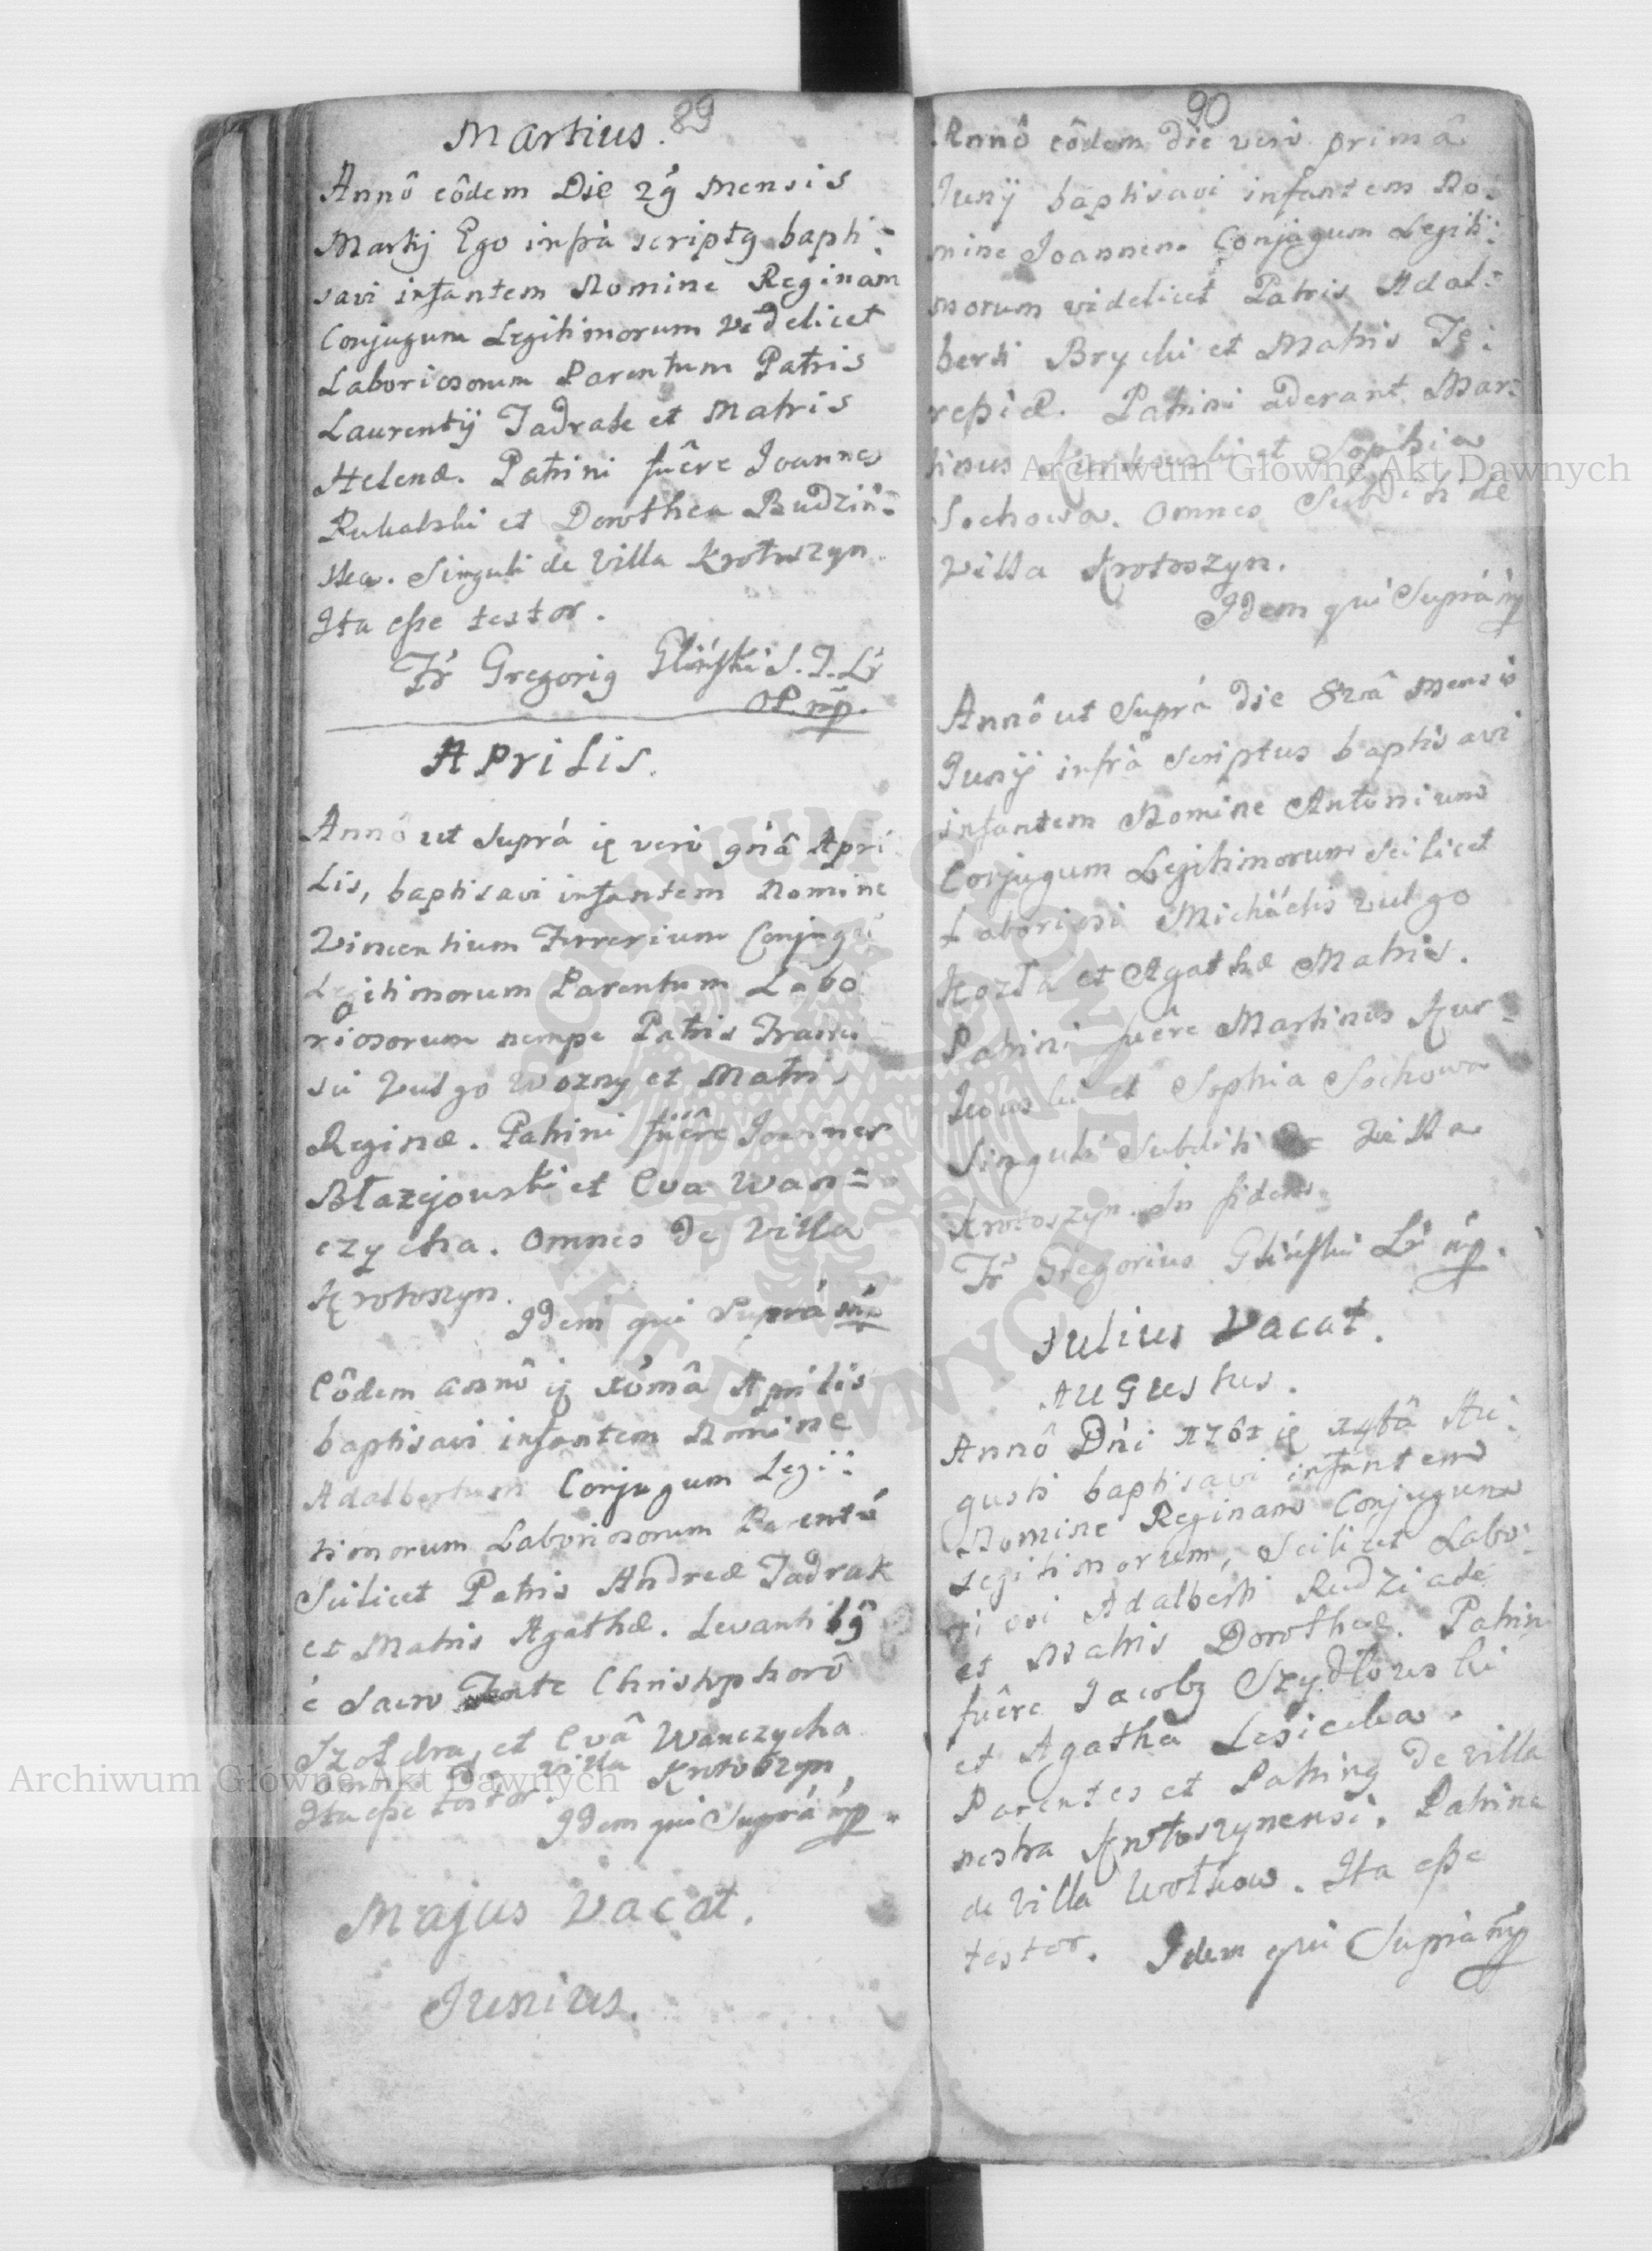 89
Martius.
Annô eôdem Die 29 Mensis
Martij Ego infrà scriptg bapti=
savi infantem Nomine Reginam
Conjugum Legitimorum Videlicet
Laboriosorum Parentum Patris
Laurentij Jadrak et Matris
Helenæ. Patrini fuêre Joannes
Rukalski et Dorothea Budziń=
ska. Singuli de Villa Krotoszyn
Ita eße testor.
Fr Gregorig Gliński S.T.Lr
OP. mp.
Aprilis.
Annô ut Suprá verò 9nâ Apri
Lis, baptisavi infantem Nomine
Vincentium Ferrerium Conjugū
Legitimorum Parentum Labo
riosorum nempe Patris Franci
sci Vulgo Wozny et Matris
Reginæ. Patrini fuêre Joannes
Błazejowski et Eva Wan=
czycha. Omnes de Villa
Krotoszyn.
Idem qui Suprá mp
Eôdem annô Aprilis
baptisavi infantem Nomine
Adalbertum Conjugum Legi=
timorum Laboriosorum Parentū
Scilicet Patris Andreæ Jadrak
et Matris Agathæ. Levantibg
é Sacro Fonte Christophorô
et Evâ Wanczycha
omnes De villa Krotoszyn,
Ita eße testor. Idem qui Suprá mp.
Majus Vacat.
Junius.
90
Annô eôdem die verò primâ
Junij baptisavi infantem No=
mine Joannem Conjugum Legiti=
morum videlicet Patris Adal=
berti Brychi et Matris Te=
resiæ. Patrini aderant Mar=
tinus et Sophia
Sochowa. Omnes Subditi de
Villa Krotoszyn.
Idem qui Suprá mp
Annô ut Suprá die 8vâ Mensis
Junij infrà Scriptus baptisavi
infantem Nomine Antonium
Conjugum Legitimorum Scilicet
Laboriosi Michäelis vulgo
Kozła et Agathæ Matris.
Patrini fuêre Martinus Kur=
kowski et Sophia Sochowa
Singuli Subditi de Villa
Krotoszyn. In fidem
Fr Gregorius Gliński Lr mp.
Julius Vacat.
Augustus.
Annô Dńi 1761 Au=
gusti baptisavi infantem
Nomine Reginam Conjugum
Legitimorum, Scilicet Labo=
ri osi Adalberti Rudziade
et Matris Dorotheæ. Patrini
fuêre Jacobg Szydłowski
et Agatha Lesicka.
Parentes et Patring De villa
nostra Krotoszynensi. Patrina
de Villa Wołkow. Ita eße
testor. Idem qui Suprá mp
Archiwum Główne Akt Dawnych
Archiwum Główne Akt Dawnych
ARCHIWUM GŁÓWNE AKT DAWNYCH